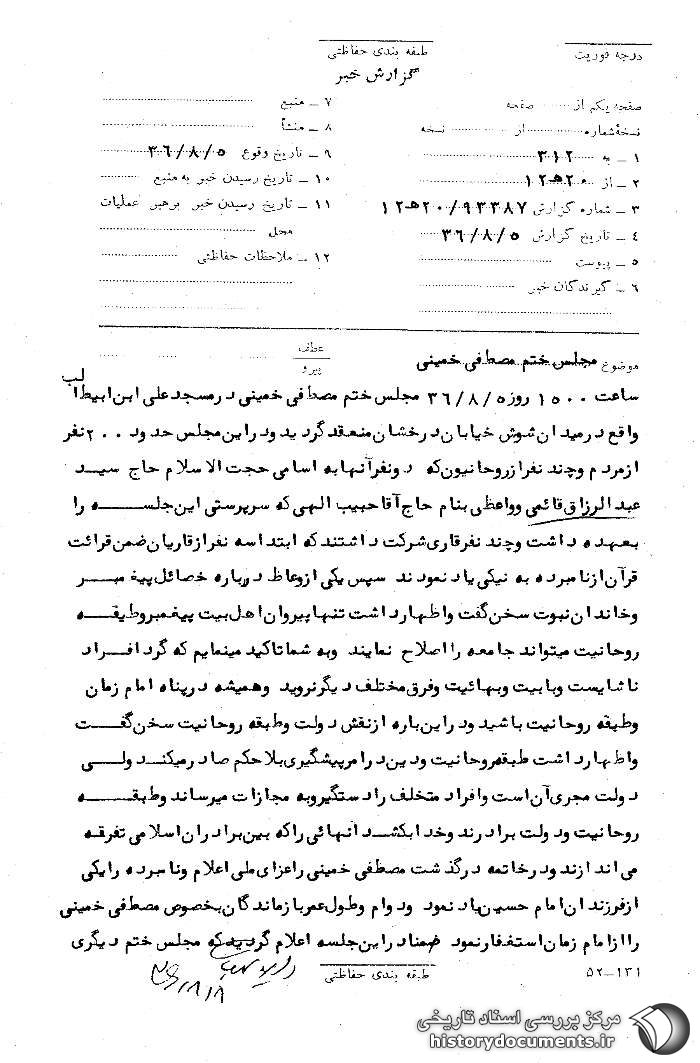 درجه فوریت
طبقه بندی حفاظتی
گزارش خبر
صفحه یکم از ........ صفحه
نسخهٔ شماره ........ از ........ نسخه
۱ ـ به ۳۱۲
۲ ـ از ۲۰ه‍۱۲
۳ ـ شماره گزارش ۹۳۳۸۷/۲۰ه‍۱۲
۴ ـ تاریخ گزارش ۳۶/۸/۵
۵ ـ پیوست
۶ ـ گیرندگان خبر
۷ ـ منبع
۸ ـ منشأ
۹ ـ تاریخ وقوع ۳۶/۸/۵
۱۰ ـ تاریخ رسیدن خبر به منبع
۱۱ ـ تاریخ رسیدن خبر برهبر عملیات
محل
۱۲ ـ ملاحظات حفاظتی
موضوع مجلس ختم مصطفی خمینی
عطف
پیرو
ساعت ۱۵۰۰ روز ۳۶/۸/۵ مجلس ختم مصطفی خمینی در مسجد علی ابن ابیطالب
واقع در میدان شوش خیابان درخشان منعقد گردید و در این مجلس حدود ۲۰۰ نفر
از مردم و چند نفر از روحانیون که دو نفر آنها به اسامی حجت الاسلام حاج سید
عبدالرزاق قائمی و واعظی بنام حاج آقا حبیب الهی که سرپرستی این جلسه را
بعهده داشت و چند نفر قاری شرکت داشتند که ابتدا سه نفر از قاریان ضمن قرائت
قرآن از نامبرده به نیکی یاد نمودند سپس یکی از وعاظ درباره خصائل پیغمبر
و خاندان نبوت سخن گفت و اظهار داشت تنها پیروان اهل بیت پیغمبر و طبقه
روحانیت میتواند جامعه را اصلاح نمایند و به شما تاکید مینمایم که گرد افراد
ناشایست و بابیت و بهائیت و فرق مختلف دیگر نروید و همیشه در پناه امام زمان
و طبقه روحانیت باشید و در این باره از نقش دولت و طبقه روحانیت سخن گفت
و اظهار داشت طبقه روحانیت و دین در امر پیشگیری بلا حکم صادر میکند ولی
دولت مجری آن است و افراد متخلف را دستگیر و به مجازات میرساند و طبقه
روحانیت و دولت برادرند و خدا بکشد آنهائی را که بین برادران اسلامی تفرقه
می اندازند و در خاتمه درگذشت مصطفی خمینی را عزای ملی اعلام و نامبرده را یکی
از فرزندان امام حسین یاد نمود و دوام و طول عمر بازماندگان بخصوص مصطفی خمینی
را از امام زمان استغفار نمود ضمنا در این جلسه اعلام گردید که مجلس ختم دیگری
طبقه بندی حفاظتی
۱۳۱-۵۲
مرکز بررسی اسناد تاریخی
historydocuments.ir